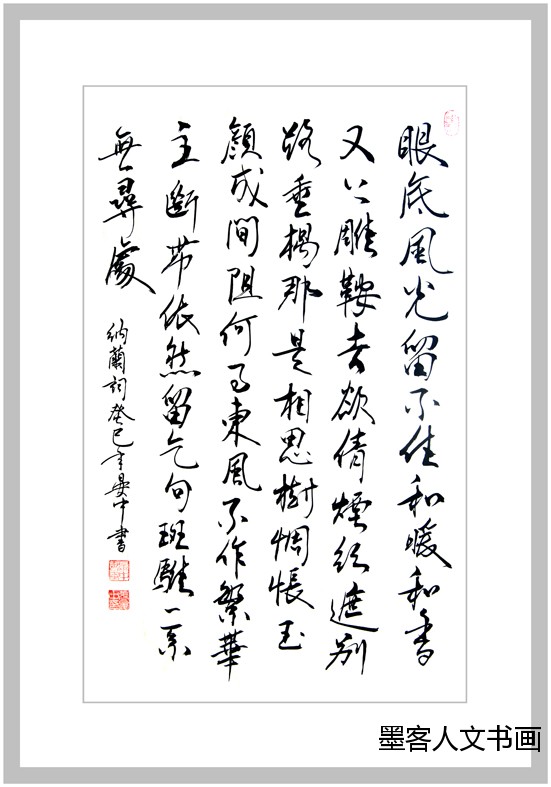 眼底風光留不住和暖和香
又上雕鞍去欲倩煙絲遮別
路垂楊那是相思樹惆悵玉
顏成間阻何事東風不作繁華
主斷帶依然留乞句斑騅一系
無尋處
納蘭詞癸巳晏中書
墨客人文书画